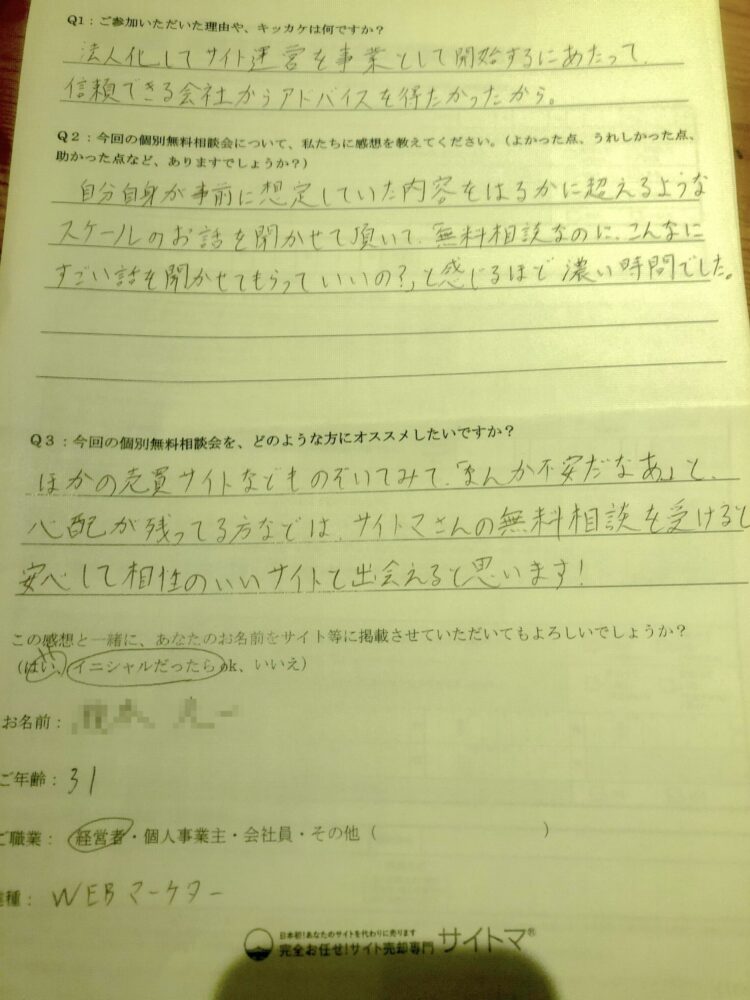 Q1：ご参加いただいた理由や、キッカケは何ですか？
法人化してサイト運営を事業として開始するにあたって、
信頼できる会社からアドバイスを得たかったから。
Q2：今回の個別無料相談会について、私たちに感想を教えてください。（よかった点、うれしかった点、
助かった点など、ありますでしょうか？）
自分自身が事前に想定していた内容をはるかに超えるような
スケールのお話を聞かせて頂いて、「無料相談なのに、こんなに
すごい話を聞かせてもらっていいの？」と感じるほど濃い時間でした。
Q3：今回の個別無料相談会を、どのような方にオススメしたいですか？
ほかの売買サイトなどものぞいてみて、「なんか不安だなあ」と、
心配が残ってる方などは、サイトマさんの無料相談を受けると
安心して相性のいいサイトと出会えると思います！
この感想と一緒に、あなたのお名前をサイト等に掲載させていただいてもよろしいでしょうか？
（はい、イニシャルだったらok、いいえ）
お名前：
ご年齢：31
ご職業：経営者・個人事業主・会社員・その他（　　　　　　　　）
種：WEBマーケター
日本初！あなたのサイトを代わりに売ります
完全お任せ！サイト売却専門 サイトマ®